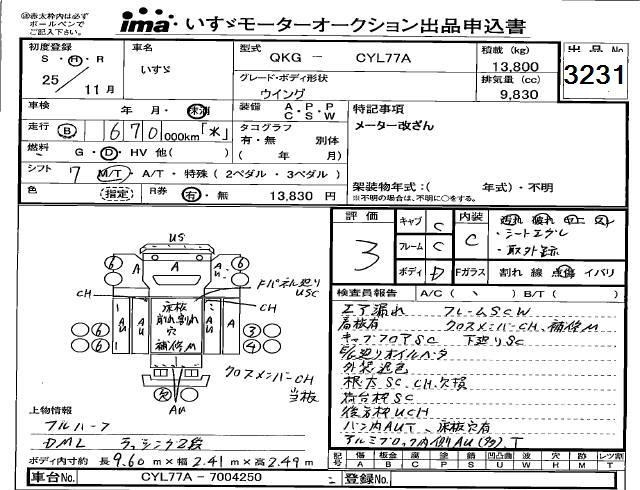 ㊟赤太枠内は必ず
ボールペンで
ご記入下さい。
ima いすゞモーターオークション出品申込書
初度登録
S・H・R
25/11月
車名
いすゞ
型式
QKG - CYL77A
グレード・ボディ形状
ウイング
積載 (kg)
13,800
排気量 (cc)
9,830
出品No
3231
車検 年・月・抹消
装備 A・P・P
C・S・W
特記事項
メーター改ざん
走行 B 670 000km「*」
タコグラフ
有・無 別体
( 年 月)
燃料 G・D・HV 他( )
シフト 7 M/T・A/T・特殊 (2ペダル・3ペダル)
色 (指定) R券 有・無 13,830 円
架装物年式:( 年式)・不明
※不明の場合は、不明に○をする。
評価
3
キャブ C
フレーム C
ボディ D
内装
C
・シートエグレ
・取外録
Fガラス 割れ 線 点傷 イバリ
検査員報告 A/C ( ) B/T ( )
エア漏れ フレームSCW
看板有 クロスメンバーCH、補修M
キャブフロアSC 下廻りSC
外装退色
根太SC、CH、欠損
荷台枠SC
後方枠UCH
バン内AUT、床板穴有
アルミブロック内側AU(多)、T
US
Fパネル廻り
USC
CH
CH
床板
削れ割れ
穴
補修M
クロスメンバーCH
当板
AU
上物情報
フルハーフ
DML ラッシング2段
ボディ内寸約 長9.60m×幅2.41m×高2.49m
記号 傷 A 板金 B 腐 C 塗 P 錆 S 凹凸曲 U 波 W 穴 H 跡 M ﾚｯﾂ割 T
車台No. CYL77A - 7004250
登録No.